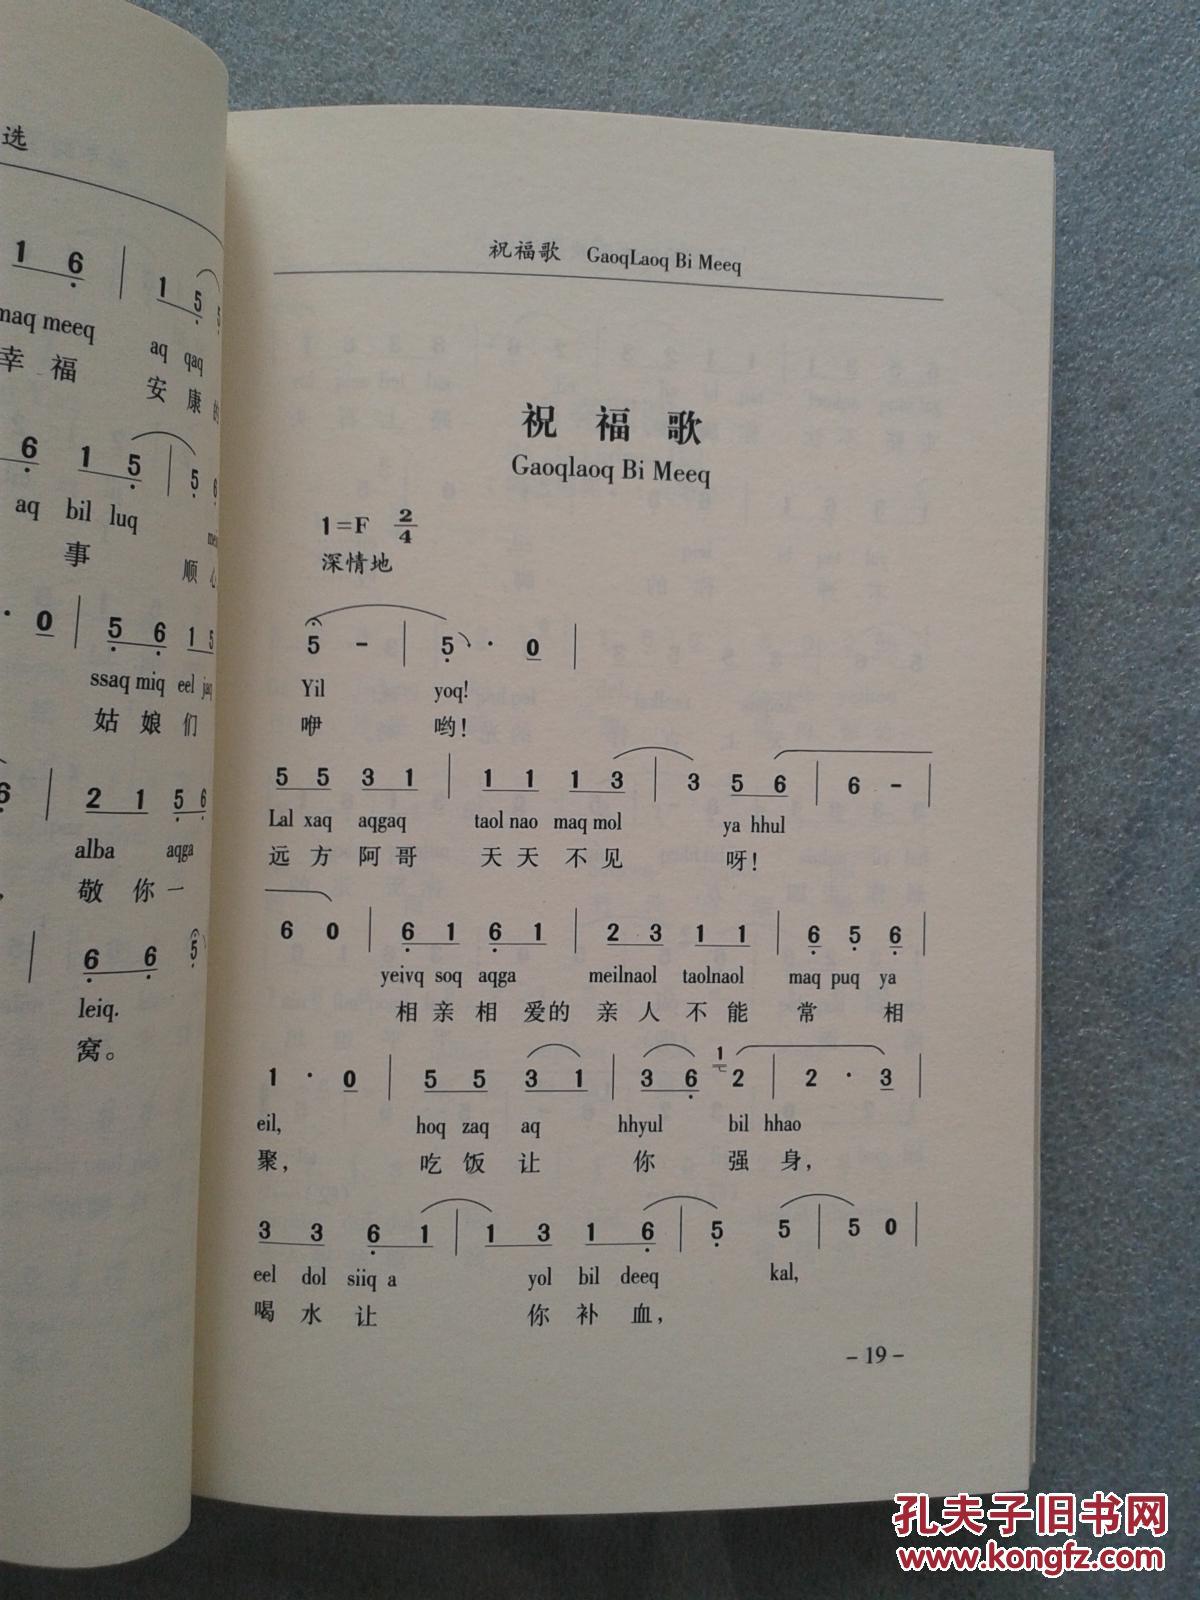 选
1 6 | 1 5
maq meeq aq qaq
幸 福 安 康 的
6 1 5 | 5 6
aq bil luq
事 顺 心
· 0 | 5 6 1 5
ssaq miq eel jaq
姑 娘 们
6 | 2 1 5 6
alba aqga
敬 你 一
| 6 6 5
leiq.
窝。
祝福歌 GaoqLaoq Bi Meeq
祝 福 歌
Gaoqlaoq Bi Meeq
1=F 2/4
深情地
5 - | 5 · 0 |
Yil yoq!
咿 哟!
5 5 3 1 | 1 1 1 3 | 3 5 6 | 6 - |
Lal xaq aqgaq taol nao maq mol ya hhul
远 方 阿 哥 天 天 不 见 呀!
6 0 | 6 1 6 1 | 2 3 1 1 | 6 5 6 |
yeivq soq aqga meilnaol taolnaol maq puq ya
相 亲 相 爱的 亲 人 不 能 常 相
1 · 0 | 5 5 3 1 | 3 6 1 2 | 2 · 3 |
eil, hoq zaq aq hhyul bil hhao
聚, 吃 饭 让 你 强 身,
3 3 6 1 | 1 3 1 6 | 5 5 | 5 0 |
eel dol siiq a yol bil deeq kal,
喝 水 让 你 补 血,
- 19 -
孔夫子旧书网
www.kongfz.com